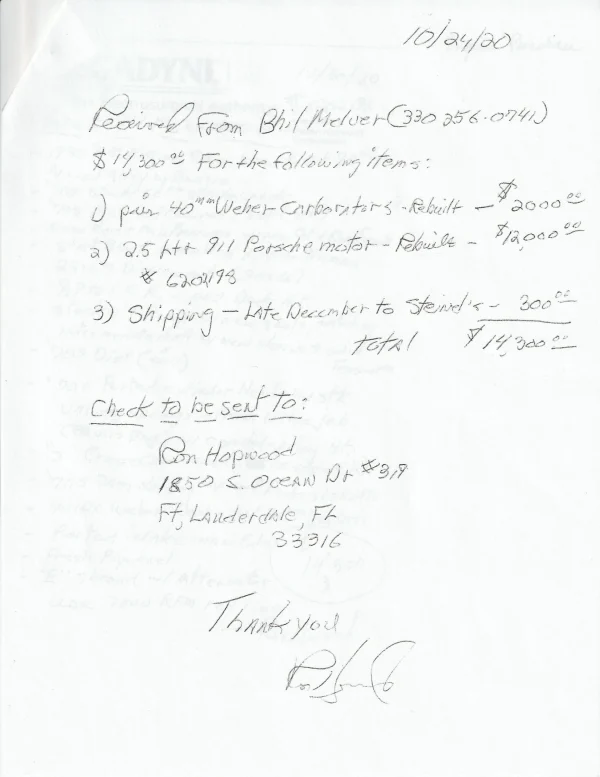 10/24/20
Received From Bhil McIver (330 256-0741)
$14,300.00 For the following items:
1) pair 40mm Weber Carborators - Rebuilt - $2000.00
2) 2.5 ltr 911 Porsche motor - Rebuilt - $12,000.00
# 6202198
3) Shipping - Late December to Steinel's - 300.00
Total $14,300.00
Check to be sent to:
Ron Hopwood
1850 S. Ocean Dr #319
Ft, Lauderdale, FL
33316
Thank you